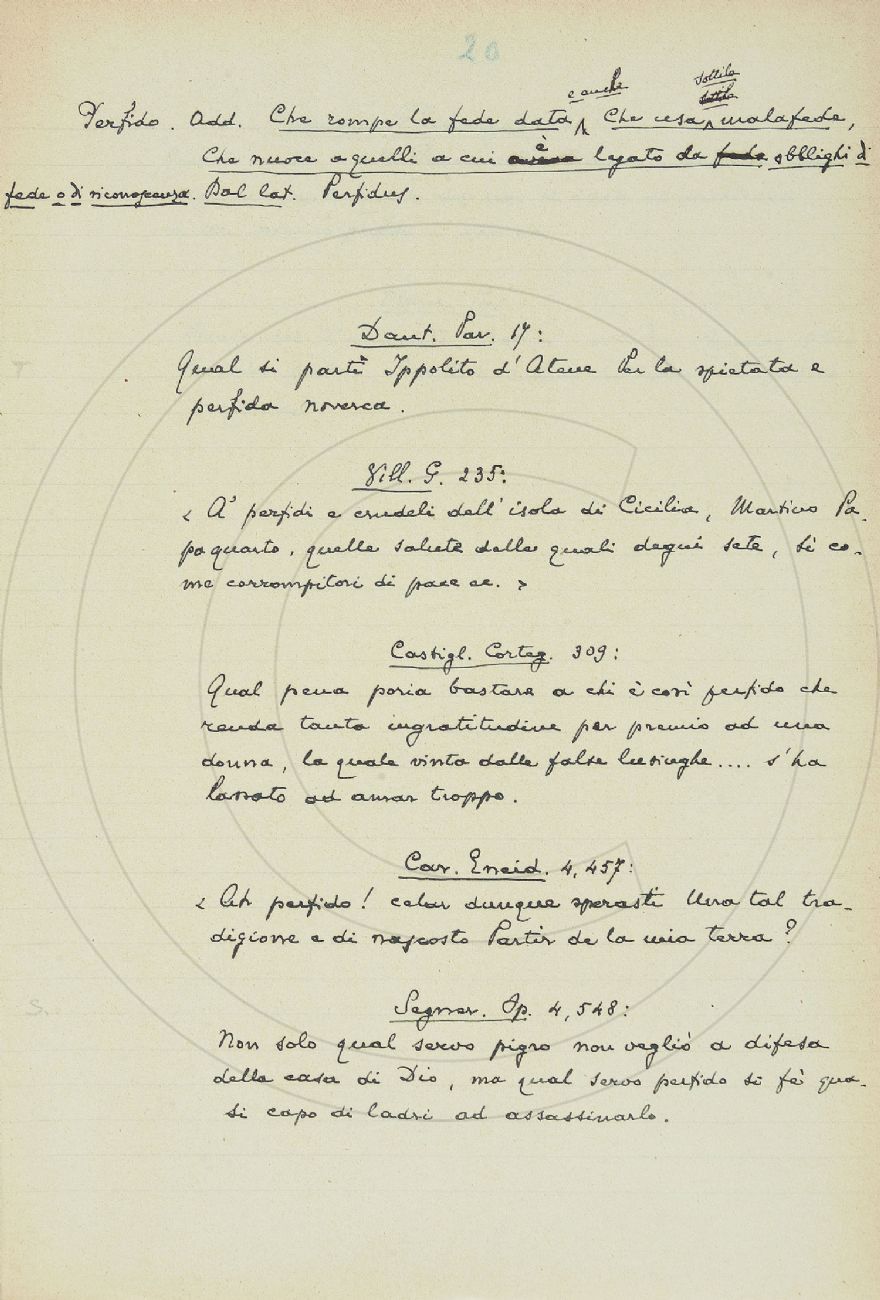 20
e anche sottile
Perfido. Add. Che rompe la fede data, Che usa malafede,
Che nuoce a quelli a cui è legato da obblighi di
fede o di riconoscenza. Dal lat. Perfidus.
Dant. Par. 17:
Qual si partì Ippolito d'Atene Per la spietata e
perfida noverca.
Vill. G. 235:
« A' perfidi e crudeli dell'isola di Cicilia, Martino Pa-
pa quarto, quelle salute delle quali degni sete, sì co-
me corrompitori di pace ec. »
Castigl. Corteg. 309:
Qual pena poria bastare a chi è così perfido che
renda tanta ingratitudine per premio ad una
donna, la quale vinta dalle false lusinghe.... s'ha
lassato ad amar troppo.
Car. Eneid. 4, 457:
« Ah perfido! celar dunque sperasti Una tal tra-
digione e di nascosto Partir de la mia terra?
Segner. Op. 4, 548:
Non solo qual servo pigro non vegliò a difesa
della casa di Dio, ma qual servo perfido si fè qua-
si capo di ladri ad assassinarlo.